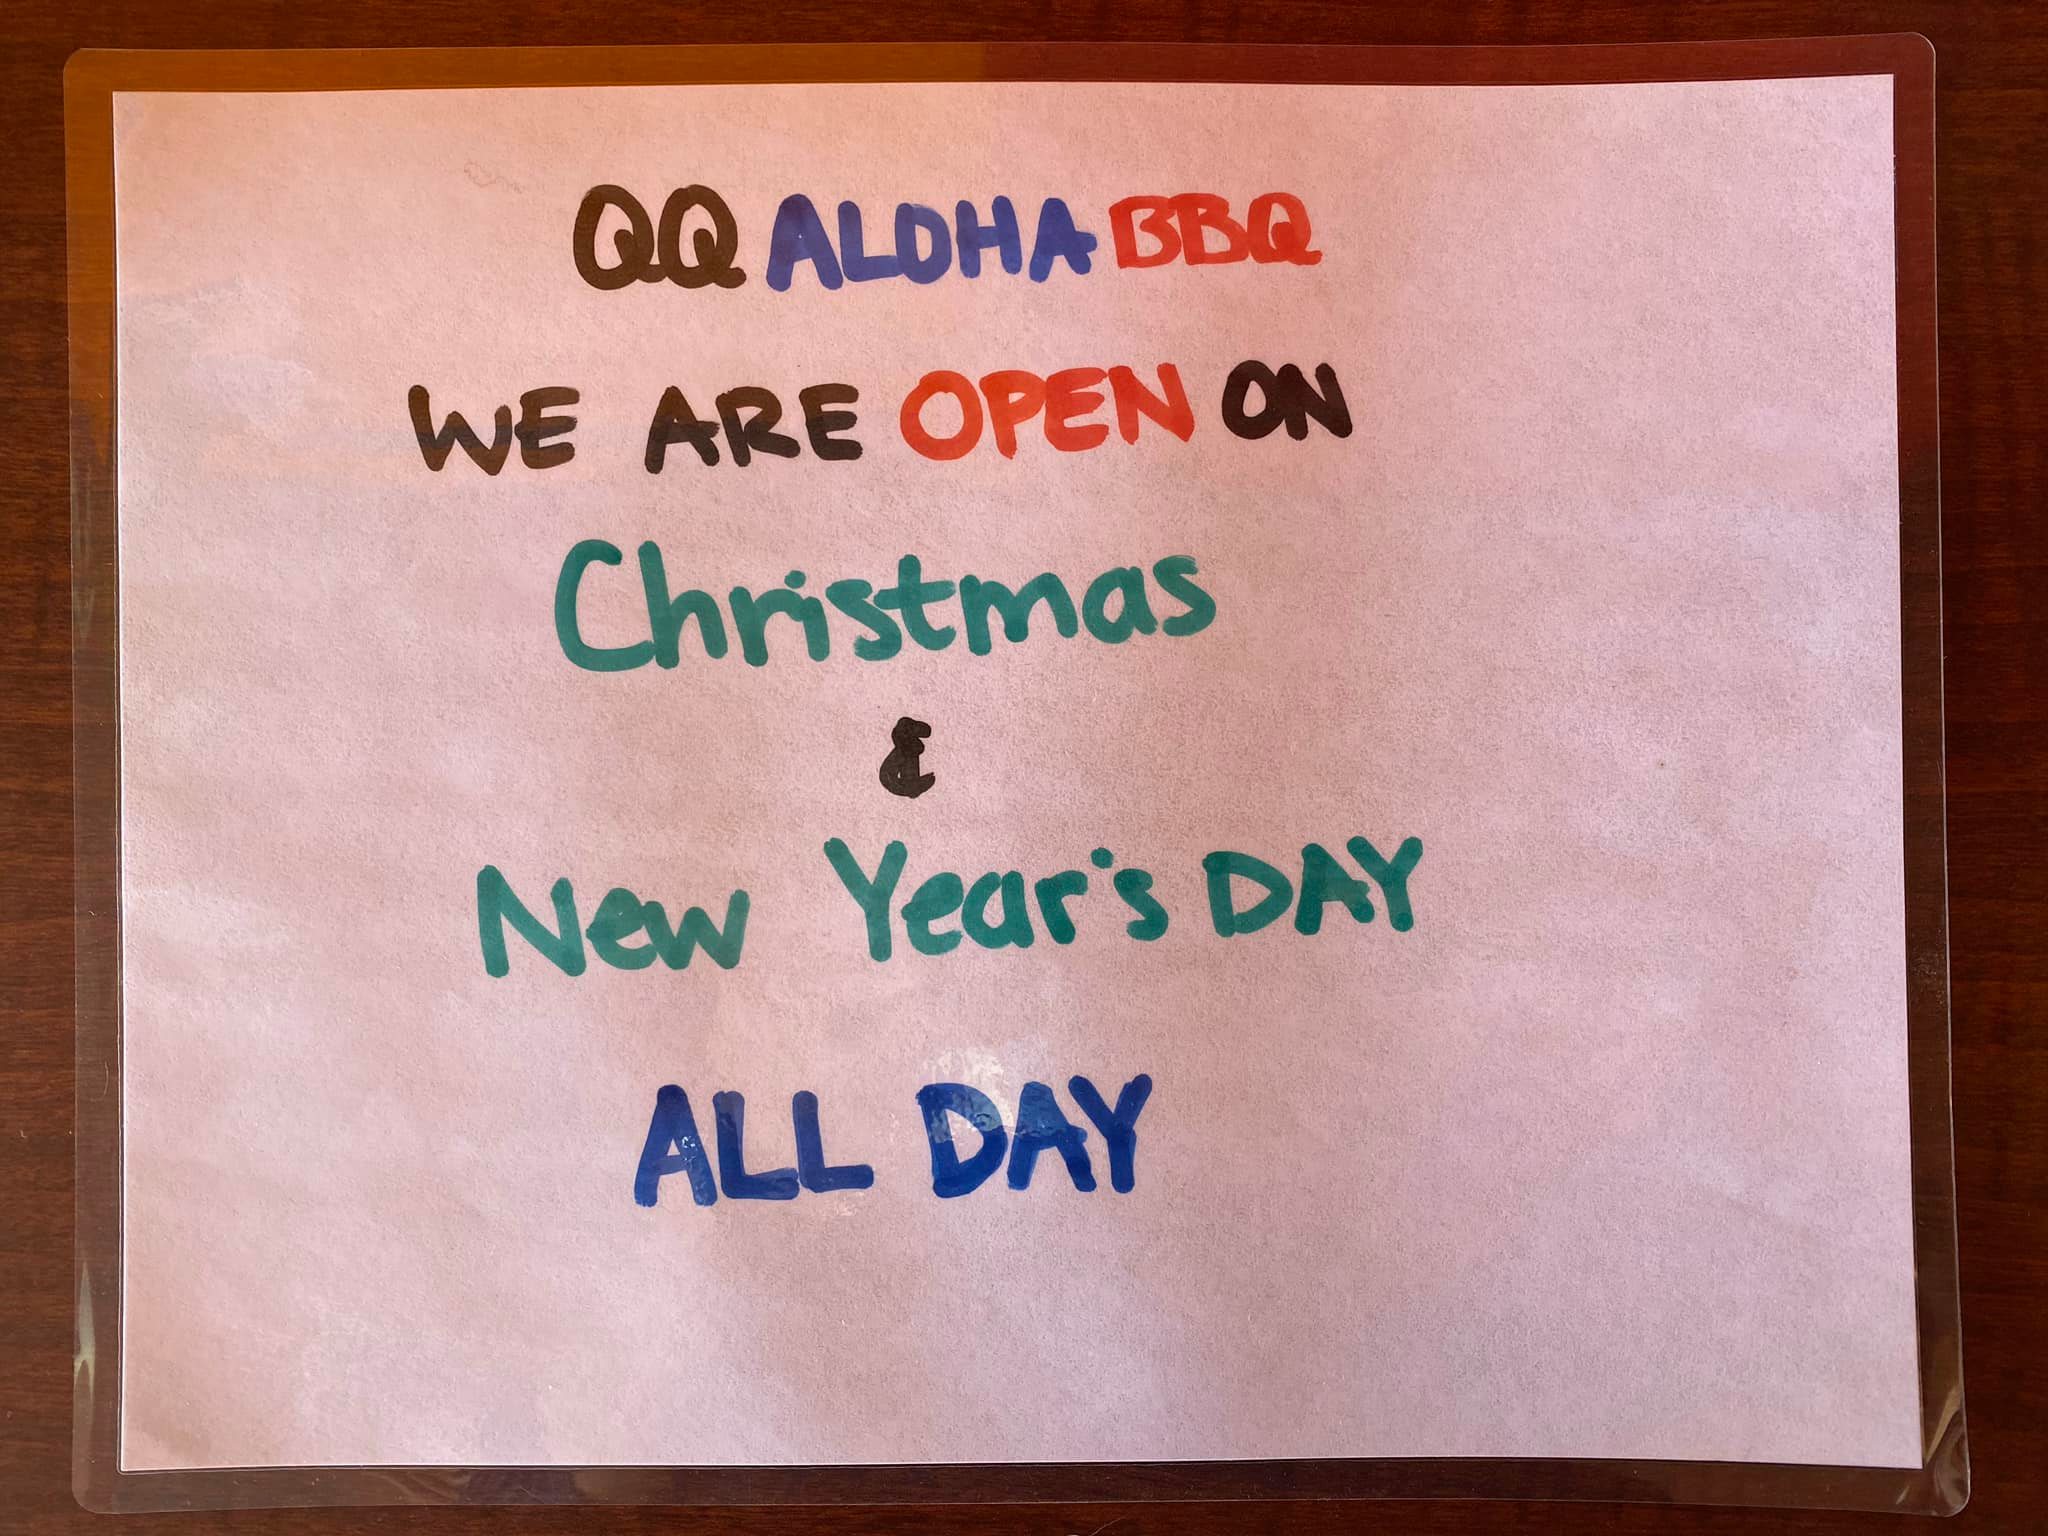 QQ ALOHA BBQ
WE ARE OPEN ON
Christmas
&
New Year's DAY
ALL DAY